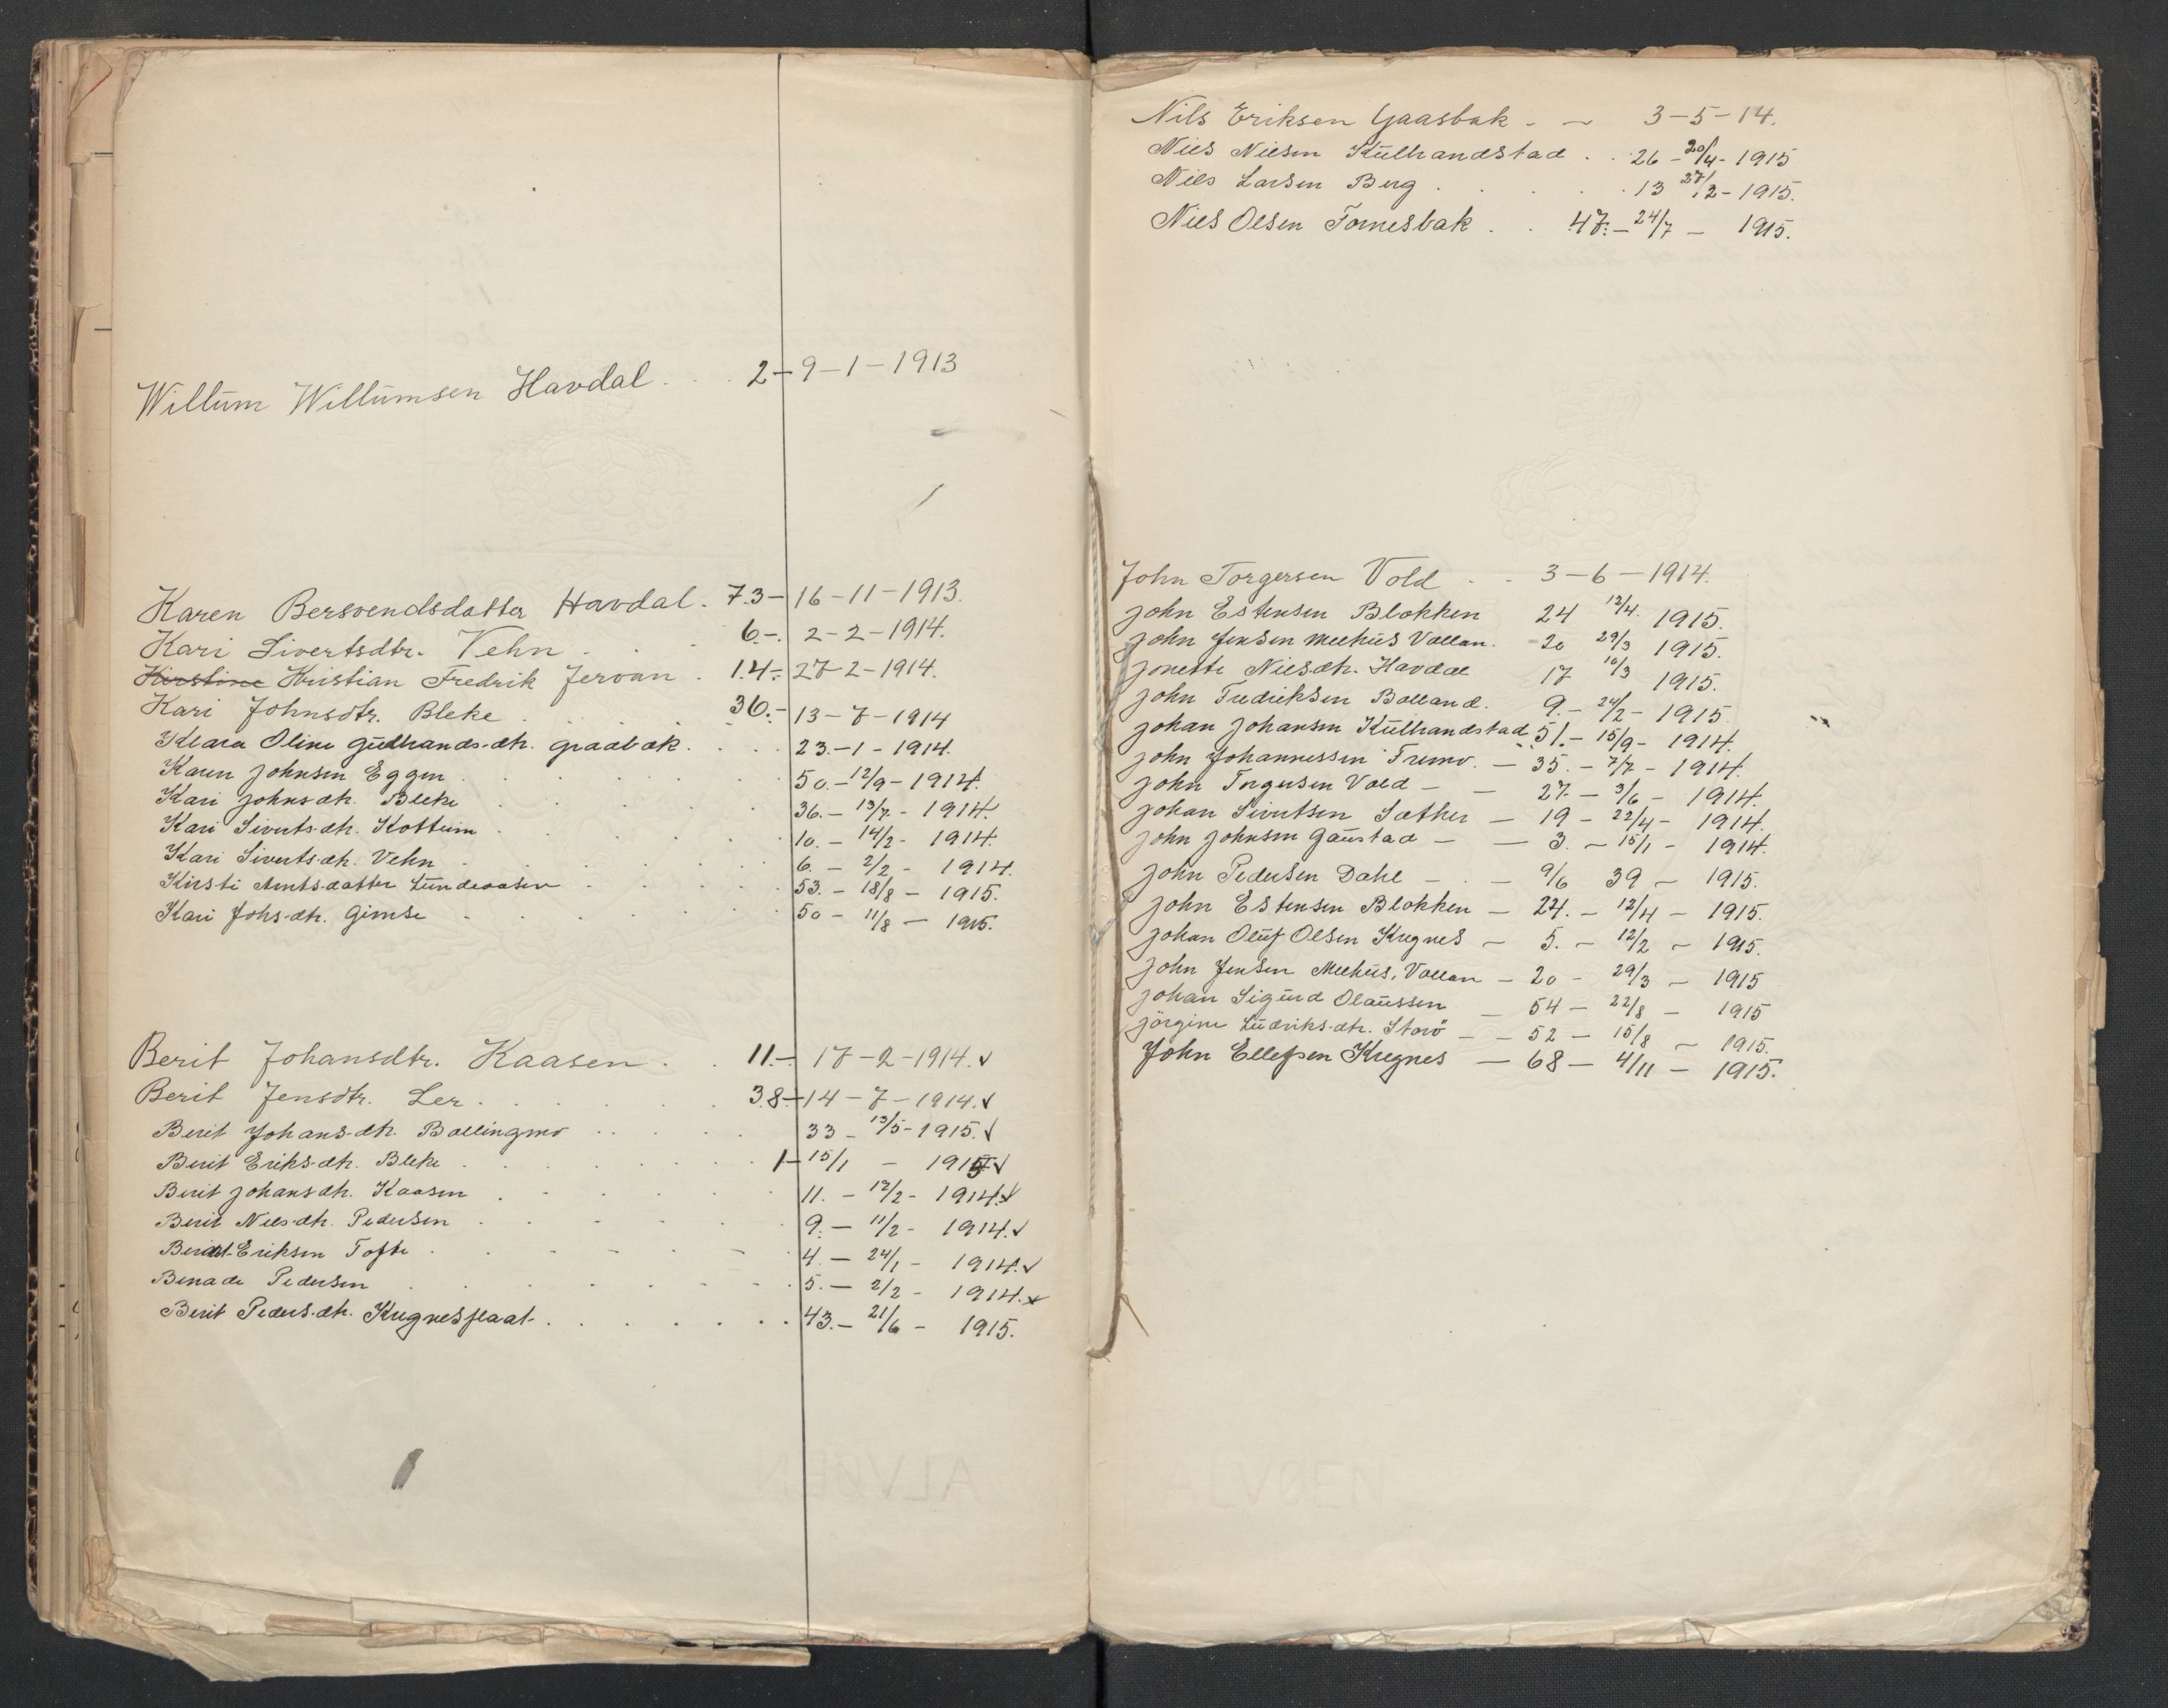 Willum Willumsen Havdal. . . 2 - 9 - 1 - 1913
Karen Bersvendsdatter Havdal. 73 - 16 - 11 - 1913.
Kari Sivertsdtr. Vehn . . . 6 -. 2 - 2 - 1914.
Kirstine Kristian Fredrik Jervan . 14 - 27 - 2 - 1914.
Kari Johnsdtr. Bleke . . . . 36. - 13 - 7 - 1914
Klara Oline Gudbrands-dtr. Graabak. . . . 23. - 1 - 1914.
Karen Johnsen Eggen . . . . . 50. - 12/9 - 1914.
Kari Johnsdtr. Bleke . . . . 36. - 13/7 - 1914.
Kari Siverts-dtr. Kottum . . . . 10. - 14/2 - 1914.
Kari Siverts-dtr. Vehn . . . . 6 - 2/2 - 1914.
Kirsti Arntsdatter Lundeaasen . . . . 53. - 18/8 - 1915.
Kari Johs-dtr. Gimse . . . . 50 - 11/8 - 1915.
Berit Johansdtr. Kaasen . . 11. - 17 - 2 - 1914. ✓
Berit Jensdtr. Ler . . . . . 38 - 14 - 7 - 1914. ✓
Berit Johans-dtr. Ballingmo . . . . 33 - 13/5 - 1915. ✓
Berit Eriks-dtr. Bleke . . . . . 1 - 15/1 - 1915 ✓
Berit Johansdtr. Kaasen . . . . 11. - 12/2 - 1914. ✓
Berit Nils-dtr. Pedersen . . . . 9. - 11/2 - 1914. ✓
Eriksen Tofte . . . . 4. - 24/1 - 1914. ✓
Pedersen . . . . 5. - 2/2 - 1914. ✓
Berit Peders-dtr. Kregnesplaat . . . . . . 43. - 21/6 - 1915.
Nils Eriksen Gaasbak - - 3 - 5 - 14.
Nils Nilsen Kulbrandstad . . 26 - 20/4 - 1915
Nils Larsen Berg . . . . . 13 27/2 - 1915.
Nils Olsen Fornesbak . . 47. - 24/7 - 1915.
John Torgersen Vold . . 3 - 6 - 1914.
John Estensen Blokken 24 12/4. 1915.
John Jensen Melhus Vollan. - 20 29/3 1915.
Jonette Nilsdtr. Havdal 17 16/3 1915.
John Fredriksen Bolland. 9. - 24/2 - 1915.
Johan Johansen Kulbrandstad 51. - 15/9 - 1914.
John Johannessen Fremo. - 35. - 7/7 - 1914.
John Torgersen Vold - - 27. - 3/6 - 1914.
Johan Sivertsen Sæther - 19 - 22/4 - 1914.
John Johnsen Gaustad - - 3. - 15/1 - 1914.
John Pedersen Dahl - . - 9/6 39 - 1915.
John Estensen Blokken - 24. - 12/4 - 1915.
Johan Oluf Olsen Kregnes - 5. - 12/2 - 1915.
John Jensen Melhus, Vollan - 20 - 29/3 - 1915
Johan Sigurd Olaussen - 54 - 22/8 - 1915
Jörgine Ludriks-dtr. Storö - - 52 - 15/8 - 1915.
John Ellefsen Kregnes - 68 - 4/11 - 1915.